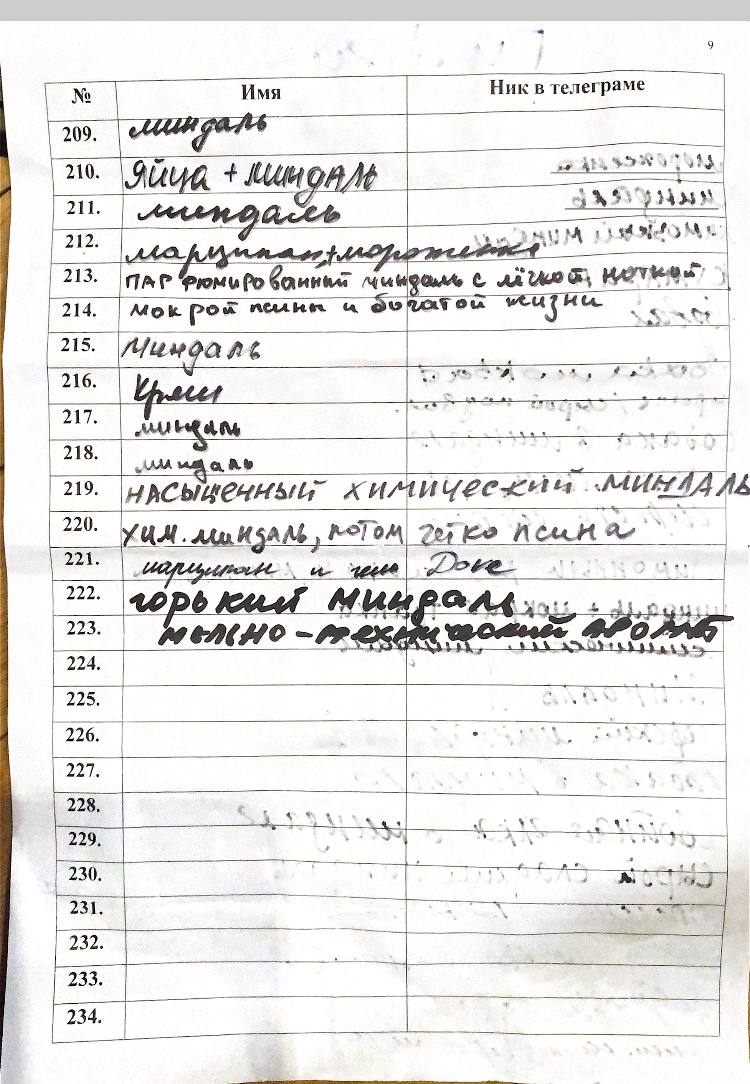 9
№ Имя Ник в телеграме
209. миндаль
210. Яйца + миндаль
211. миндаль
212. марципан + мороженка
213. парфюмированный миндаль с лёгкой ноткой
214. мокрой псины и богатой жизни
215. миндаль
216.
217. миндаль
218. миндаль
219. насыщенный химический миндаль
220. хим. миндаль, потом четко псина
221. марципан и
222. горький миндаль
223. мыльно-технический аромат
224.
225.
226.
227.
228.
229.
230.
231.
232.
233.
234.